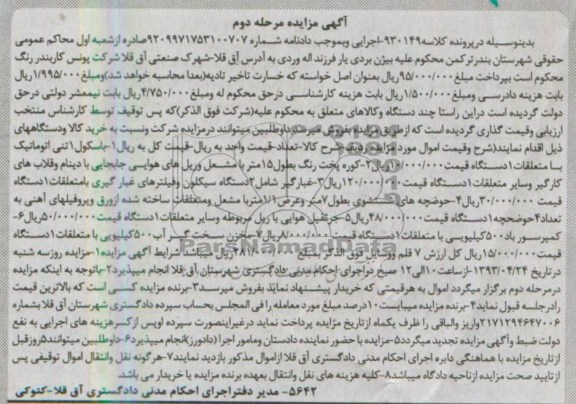 آگهی مزایده مرحله دوم
بدینوسیله درپرونده کلاسه۹۳۰۱۴۹-اجرایی وبموجب دادنامه شماره ۹۲۰۹۹۷۱۷۵۳۱۰۰۷۰۷صادره ازشعبه اول محاکم عمومی
حقوقی شهرستان بندرترکمن محکوم علیه بیژن بردی یار فرزند اله وردی به آدرس آق قلا-شهرک صنعتی آق قلا شرکت یونس کاربندر رنگ
محکوم است بپرداخت مبلغ ۹۵/۰۰۰/۰۰۰ریال بعنوان اصل خواسته که خسارت تاخیر تادیه(بعدا محاسبه خواهد شد)ومبلغ۱/۹۹۵/۰۰۰ریال
بابت هزینه دادرسی ومبلغ۱/۵۰۰/۰۰۰ریال بابت هزینه کارشناسی درحق محکوم له ومبلغ۴/۷۵۰/۰۰۰ریال بابت نیمعشر دولتی درحق
دولت گردیده است دراین راستا چند دستگاه وکالاهای متعلق به محکوم علیه(شرکت فوق الذکر)که پس توقیف توسط کارشناس منتخب
ارزیابی وقیمت گذاری گردیده است که ازطریق مزایده بفروش میرسد داوطلبین میتوانند درمزایده شرکت ونسبت به خرید کالا ودستگاههای
ذیل اقدام نمایند(شرح وقیمت اموال مورد مزایده ردیف-شرح کالا-تعداد-قیمت واحد به ریال-قیمت کل به ریال۱-باسکول۱تنی اتوماتیک
بـا متعلقات۱دستگاه قیمت۱۰/۰۰۰/۰۰۰ریال۲-کوره پخت رنگ بطول۱۵متر با مشعل وریل های هوایی جابجایی با دینام وقلاب های
کارگیر وسایر متعلقات۱دستگاه قیمت۱۲۰/۰۰۰/۰۰۰ریال۳-غبارگیر شامل۲دستگاه سیکلون وفیلترهای غبار گیری بامتعلقات۱دستگاه
قیمت ۳۰/۰۰۰/۰۰۰ریال۴-حوضچه های شستشوی بطول۷متر وعرض۱/۱متربا مشعل ومتعلقات ساخته شده ازورق وپروفیلهای آهنی به
تعداد۴حوضچه۱دستگاه قیمت۴۸/۰۰۰/۰۰۰ریال۵-جرثقیل هوایی با ریل مربوطه وسایر متعلقات۱دستگاه قیمت۵۰/۰۰۰/۰۰۰ریال۶-
کمپرسور باد۵۰۰کیلیویـی با متعلقات۱دستگاه قیمت۸/۰۰۰/۰۰۰ریال۷-مخزن پـخـت گـیـر آب ۵۰۰کیلویی با متعلقات۱دستگاه
قیمت۱۵/۰۰۰/۰۰۰ریال کل ارزش ۷ قلم ووسایل فوق الذکر بمبلغ ۲۸۱/۰۰۰/۰۰۰ریال میباشد شرایط آگهی مزایده۱-مزایده روزسه شنبه
درتاریخ ۱۳۹۳/۰۴/۲۴-ازساعت۱۰الی۱۲ صبح دراجرای احکام مدنی دادگستری شهرستان آق قلا انجام میپذیرد۲-باتوجه به اینکه مزایده
درمرحله دوم برگزار میگردد اموال به هرقیمتی که خریدار پیشنهاد نماید بفروش میرسد۳-برنده مزایده کسی است که بالاترین قیمت
رادرجلسه قبول نماید۴-برنده مزایده میبایست۱۰درصد مبلغ مورد معامله را فی المجلس بحساب سپرده دادگستری شهرستان آق قلا بشماره
۲۱۷۱۲۹۴۶۴۷۰۰۶واریز والباقی را ظرف یکماه ازتاریخ مزایده پرداخت نماید درغیراینصورت سپرده اوپس ازکسرهزینه های اجرایی به نفع
دولت ضبط وآگهی مزایده تجدید میگردد۵-مزایده با حضور نماینده دادستان ومامور اجرا(دادورز)انجام میپذیرد۶-داوطلبین میتوانند۵روزقبل
ازتاریخ مزایده با هماهنگی دایره اجرای احکام مدنی دادگستری آق قلا ازاموال مذکور بازدید نمایند۷-هرگونه نقل وانتقال اموال توقیفی پس
ازتایید صحت مزایده ازناحیه دادگاه میباشد۸-کلیه هزینه های نقل وانتقال بعهده برنده مزایده یا خریدار می باشد.
۵۶۴۲- مدیر دفتراجرای احکام مدنی دادگستری آق قلا-کتوکی
ParsNamadData